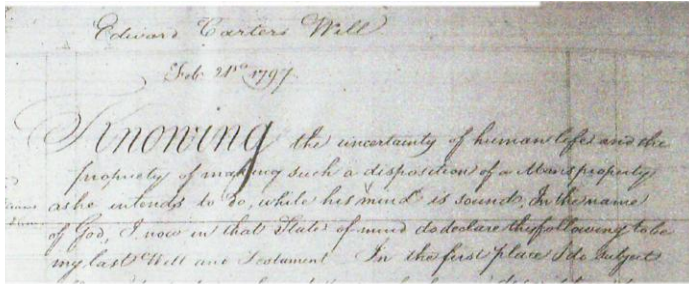 Edward Carters Will
Feb 21st 1797
Knowing the uncertainty of human life and the
propriety of making such a disposition of a Mans property
as he intends to do, while his mind is sound, In the name
of God, I now in that State of mind do declare the following to be
my last Will and Testament In the first place I do subject